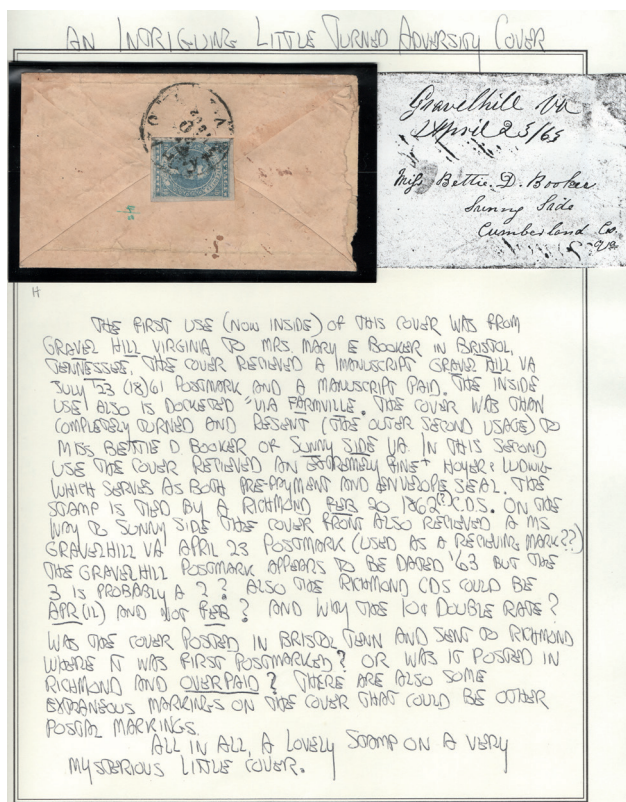 AN INTRIGUING LITTLE TURNED ADVERSITY COVER
Gravelhill Va
April 23/63
Miss Bettie D. Booker
Sunny Side
Cumberland Co.
Va
H
THE FIRST USE (NOW INSIDE) OF THIS COVER WAS FROM
GRAVEL HILL VIRGINIA TO MRS. MARY E BOOKER IN BRISTOL,
TENNESSEE. THE COVER RECEIVED A MANUSCRIPT GRAVEL HILL VA
JULY 23 (18)61 POSTMARK AND A MANUSCRIPT PAID. THE INSIDE
USE ALSO IS DOCKETED "VIA FARMVILLE. THE COVER WAS THAN
COMPLETELY TURNED AND RESENT (THE OUTER SECOND USAGE) TO
MISS BETTIE D. BOOKER OF SUNNY SIDE VA. IN THIS SECOND
USE THE COVER RECEIVED AN EXTREMELY FINE+ HOYER & LUDWIG
WHICH SERVES AS BOTH PRE-PAYMENT AND ENVELOPE SEAL. THE
STAMP IS TIED BY A RICHMOND FEB 20 1862(?) C.D.S. ON THE
WAY TO SUNNY SIDE THE COVER FRONT ALSO RECEIVED A MS
GRAVELHILL VA APRIL 23 POSTMARK (USED AS A RECEIVING MARK??)
THE GRAVELHILL POSTMARK APPEARS TO BE DATED '63 BUT THE
3 IS PROBABLY A 2? ALSO THE RICHMOND CDS COULD BE
APR (12) AND NOT FEB? AND WHY THE 10¢ DOUBLE RATE?
WAS THE COVER POSTED IN BRISTOL TENN AND SENT TO RICHMOND
WHERE IT WAS FIRST POSTMARKED? OR WAS IT POSTED IN
RICHMOND AND OVERPAID? THERE ARE ALSO SOME
EXTRANEOUS MARKINGS ON THE COVER THAT COULD BE OTHER
POSTAL MARKINGS.
ALL IN ALL, A LOVELY STAMP ON A VERY
MYSTERIOUS LITTLE COVER.